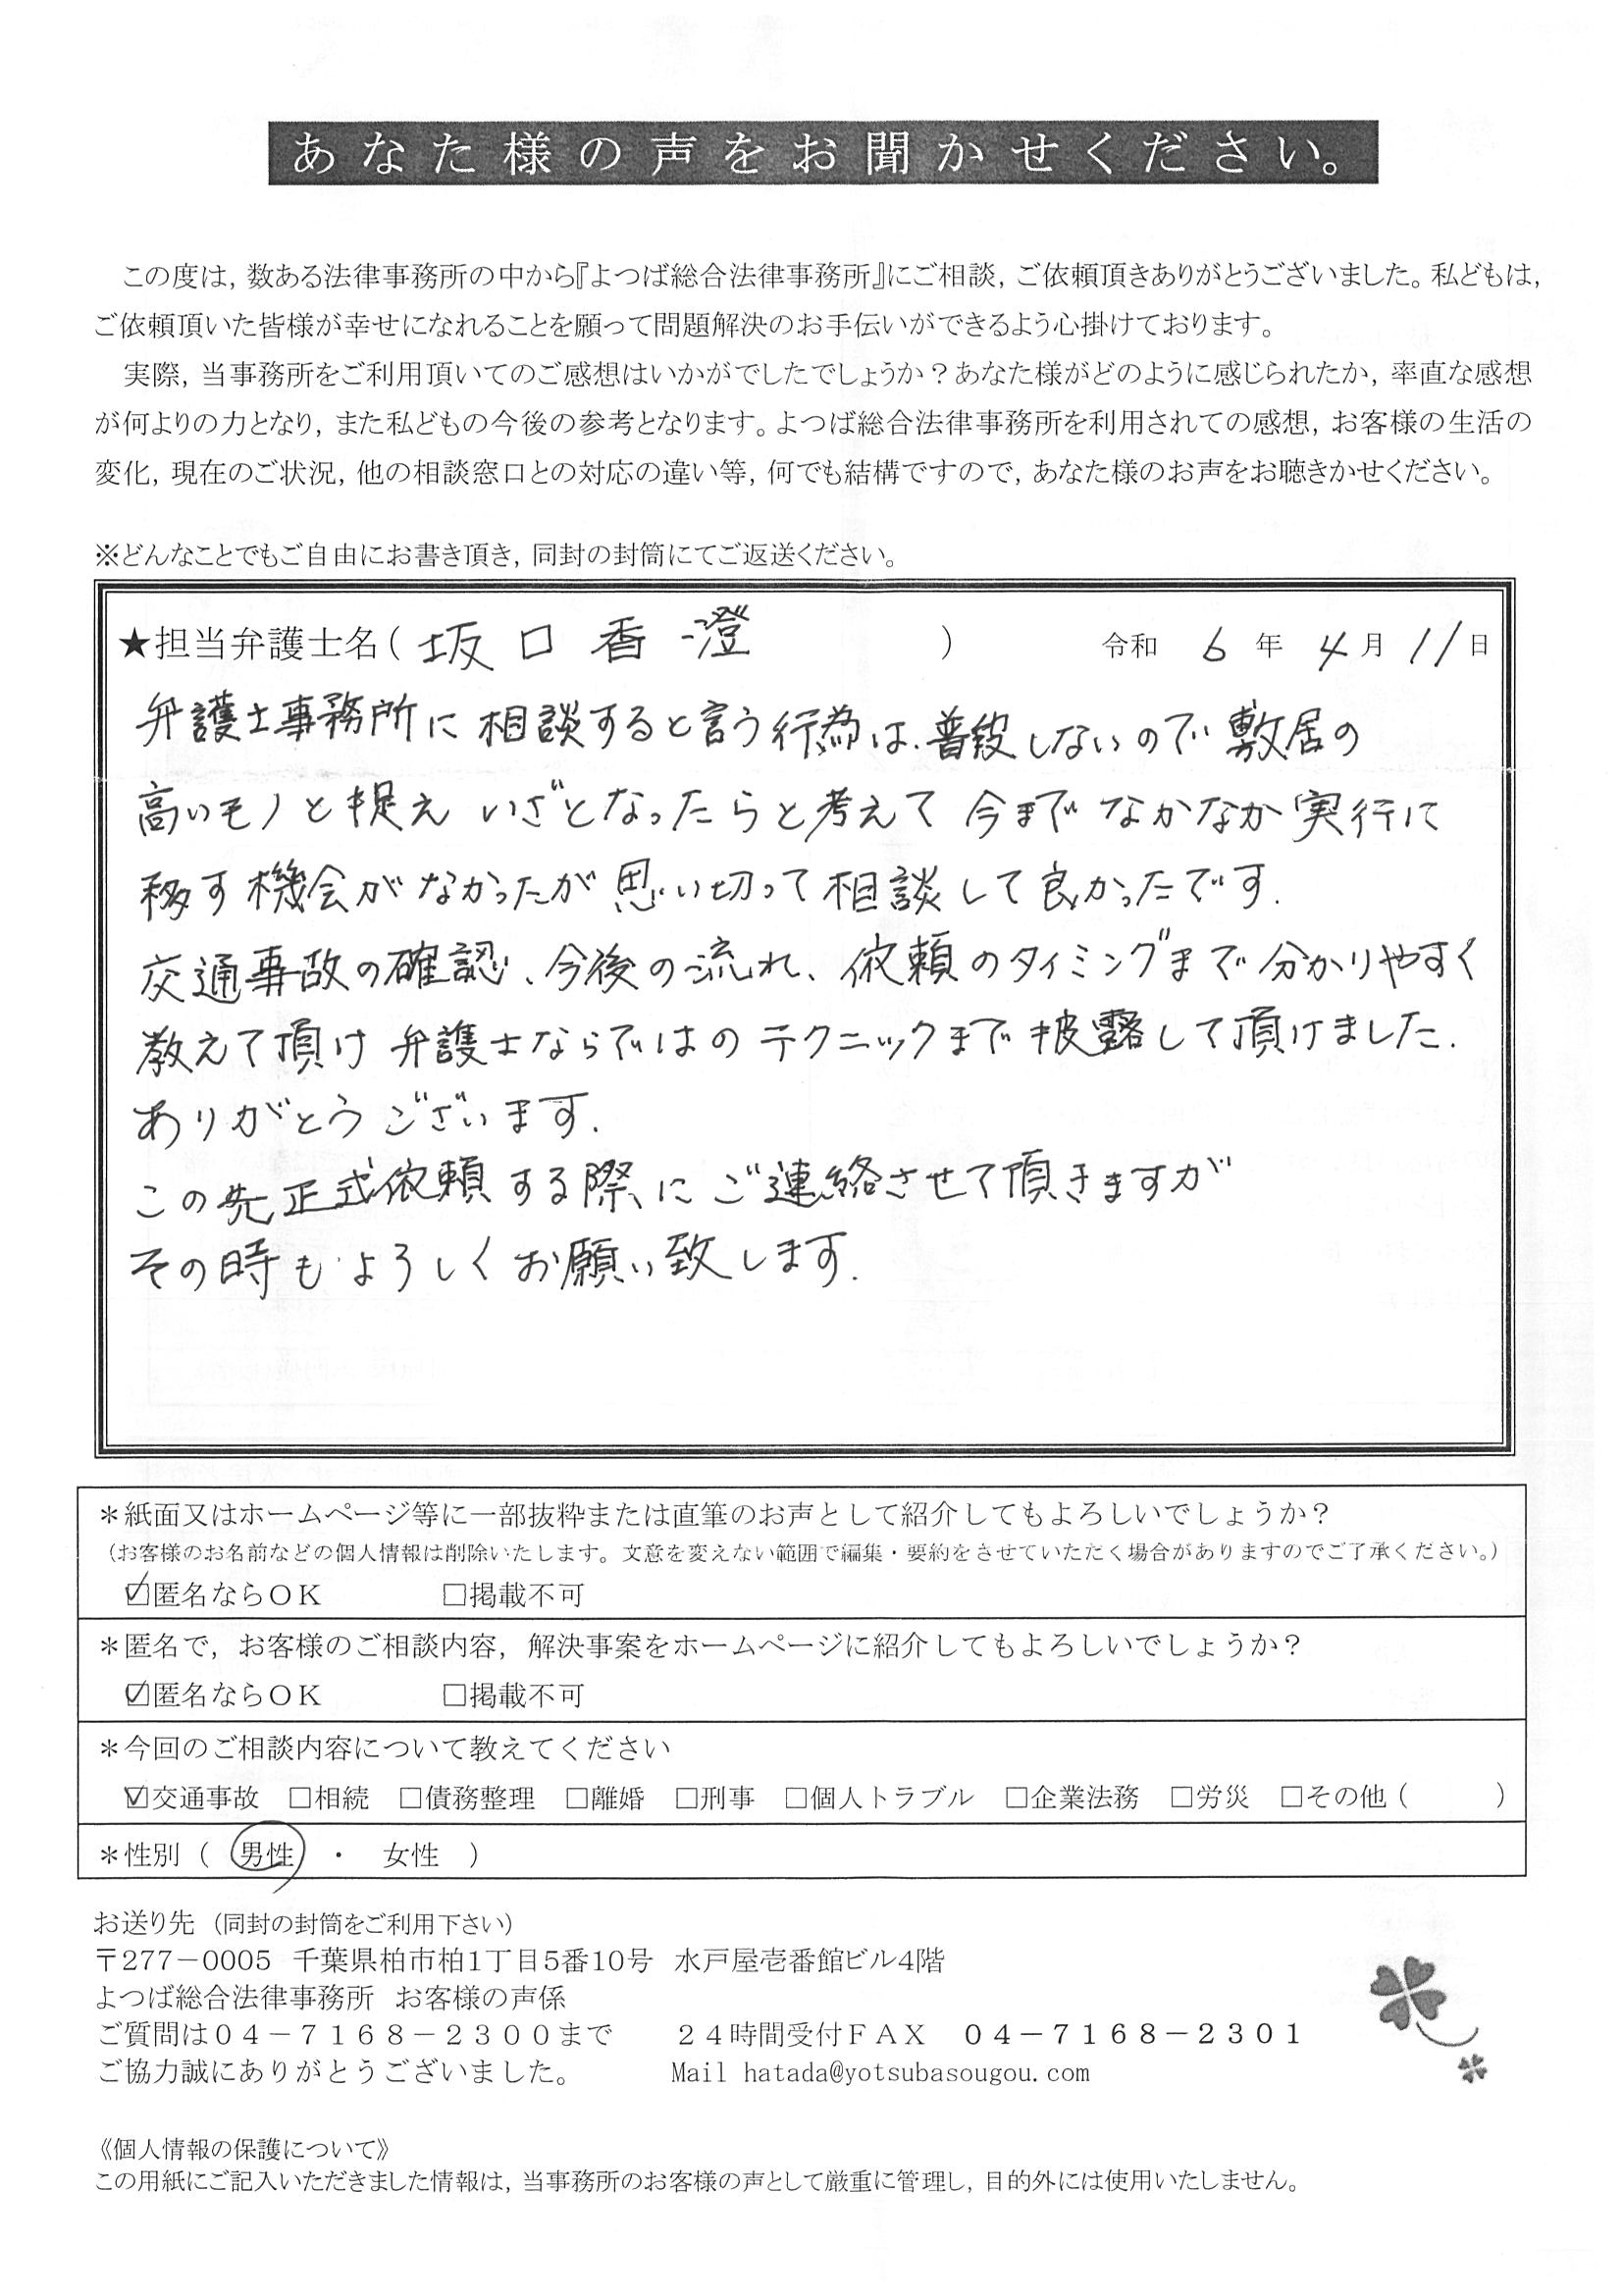 あなた様の声をお聞かせください。
この度は，数ある法律事務所の中から『よつば総合法律事務所』にご相談，ご依頼頂きありがとうございました。私どもは，
ご依頼頂いた皆様が幸せになれることを願って問題解決のお手伝いができるよう心掛けております。
実際，当事務所をご利用頂いてのご感想はいかがでしたでしょうか？あなた様がどのように感じられたか，率直な感想
が何よりの力となり，また私どもの今後の参考となります。よつば総合法律事務所を利用されての感想，お客様の生活の
変化，現在のご状況，他の相談窓口との対応の違い等，何でも結構ですので，あなた様のお声をお聴きかせください。
※どんなことでもご自由にお書き頂き，同封の封筒にてご返送ください。
★担当弁護士名（ 坂口香澄 ） 令和 6 年 4 月 11 日
弁護士事務所に相談すると言う行為は、普段しないので敷居の
高いモノと捉え いざとなったらと考えて 今まで なかなか実行に
移す機会がなかったが 思い切って相談して良かったです.
交通事故の確認、今後の流れ、依頼のタイミングまで分かりやすく
教えて頂け 弁護士ならではの テクニックまで披露して頂けました.
ありがとうございます.
この先正式依頼する際にご連絡させて頂きますが
その時もよろしくお願い致します.
＊紙面又はホームページ等に一部抜粋または直筆のお声として紹介してもよろしいでしょうか？
（お客様のお名前などの個人情報は削除いたします。文意を変えない範囲で編集・要約をさせていただく場合がありますのでご了承ください。）
☑匿名ならＯＫ □掲載不可
＊匿名で，お客様のご相談内容，解決事案をホームページに紹介してもよろしいでしょうか？
☑匿名ならＯＫ □掲載不可
＊今回のご相談内容について教えてください
☑交通事故 □相続 □債務整理 □離婚 □刑事 □個人トラブル □企業法務 □労災 □その他（ ）
＊性別（ 男性 ・ 女性 ）
お送り先（同封の封筒をご利用下さい）
〒277－0005 千葉県柏市柏1丁目5番10号 水戸屋壱番館ビル4階
よつば総合法律事務所 お客様の声係
ご質問は０４－７１６８－２３００まで ２４時間受付ＦＡＸ ０４－７１６８－２３０１
ご協力誠にありがとうございました。 Mail hatada@yotsubasougou.com
《個人情報の保護について》
この用紙にご記入いただきました情報は，当事務所のお客様の声として厳重に管理し，目的外には使用いたしません。